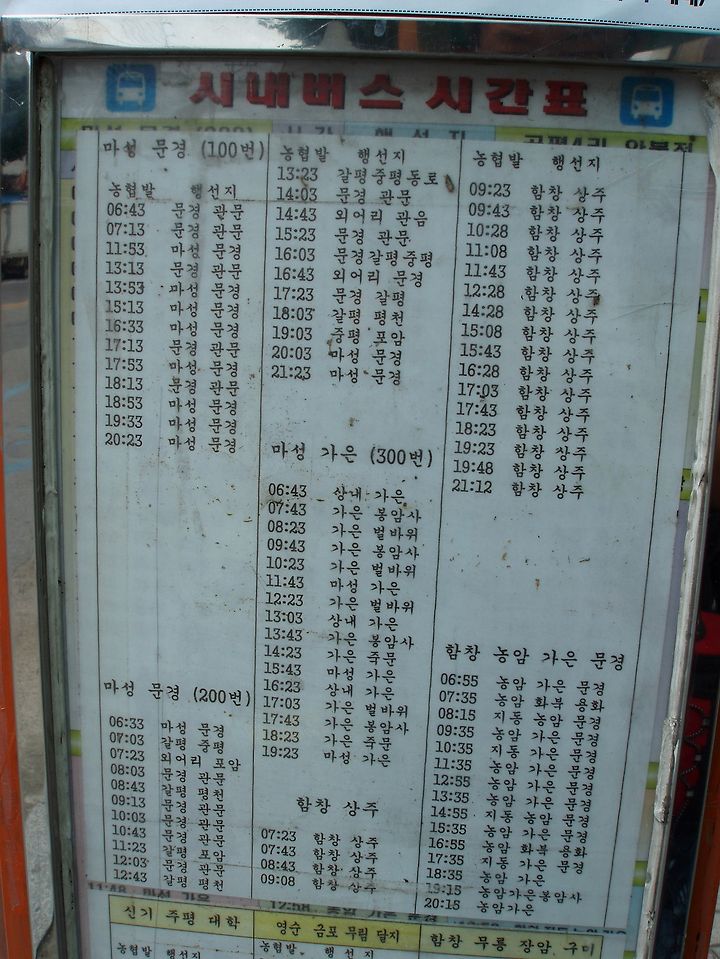 시내버스 시간표
마성 문경 (100번)
농협발 행선지
06:43 문경 관문
07:13 문경 관문
11:53 마성 문경
13:13 문경 관문
13:53 마성 문경
15:13 마성 문경
16:33 마성 문경
17:13 문경 관문
17:53 마성 문경
18:13 문경 관문
18:53 마성 문경
19:33 마성 문경
20:23 마성 문경
마성 문경 (200번)
06:33 마성 문경
07:03 갈평 중평
07:23 외어리 포암
08:03 문경 관문
08:43 갈평 평천
09:13 문경 관문
10:03 문경 관문
10:43 문경 관문
11:23 갈평 포암
12:03 문경 관문
12:43 갈평 평천
농협발 행선지
13:23 갈평중평동로
14:03 문경 관문
14:43 외어리 관음
15:23 문경 관문
16:03 문경갈평중평
16:43 외어리 문경
17:23 문경 갈평
18:03 갈평 평천
19:03 중평 포암
20:03 마성 문경
21:23 마성 문경
마성 가은 (300번)
06:43 상내 가은
07:43 가은 봉암사
08:23 가은 벌바위
09:43 가은 봉암사
10:23 가은 벌바위
11:43 마성 가은
12:23 가은 벌바위
13:03 상내 가은
13:43 가은 봉암사
14:23 가은 죽문
15:43 마성 가은
16:23 상내 가은
17:03 가은 벌바위
17:43 가은 봉암사
18:23 가은 죽문
19:23 마성 가은
함창 상주
07:23 함창 상주
07:43 함창 상주
08:43 함창 상주
09:08 함창 상주
농협발 행선지
09:23 함창 상주
09:43 함창 상주
10:28 함창 상주
11:08 함창 상주
11:43 함창 상주
12:28 함창 상주
14:28 함창 상주
15:08 함창 상주
15:43 함창 상주
16:28 함창 상주
17:03 함창 상주
17:43 함창 상주
18:23 함창 상주
19:23 함창 상주
19:48 함창 상주
21:12 함창 상주
함창 농암 가은 문경
06:55 농암 가은 문경
07:35 농암 화북 용화
08:15 지동 농암 문경
09:35 농암 가은 문경
10:35 지동 가은 문경
11:35 농암 가은 문경
12:55 농암 가은 문경
13:35 농암 가은 문경
14:55 지동 농암 문경
15:35 농암 가은 문경
16:55 농암 화북 용화
17:35 지동 가은 문경
18:35 농암 가은
19:15 농암가은봉암사
20:15 농암가은
11:48 마성 가은
신기 주평 대학
농협발 행선지
영순 금포 무림 달지
농협발 행선지
함창 무릉 장암 구미
농협발 행선지